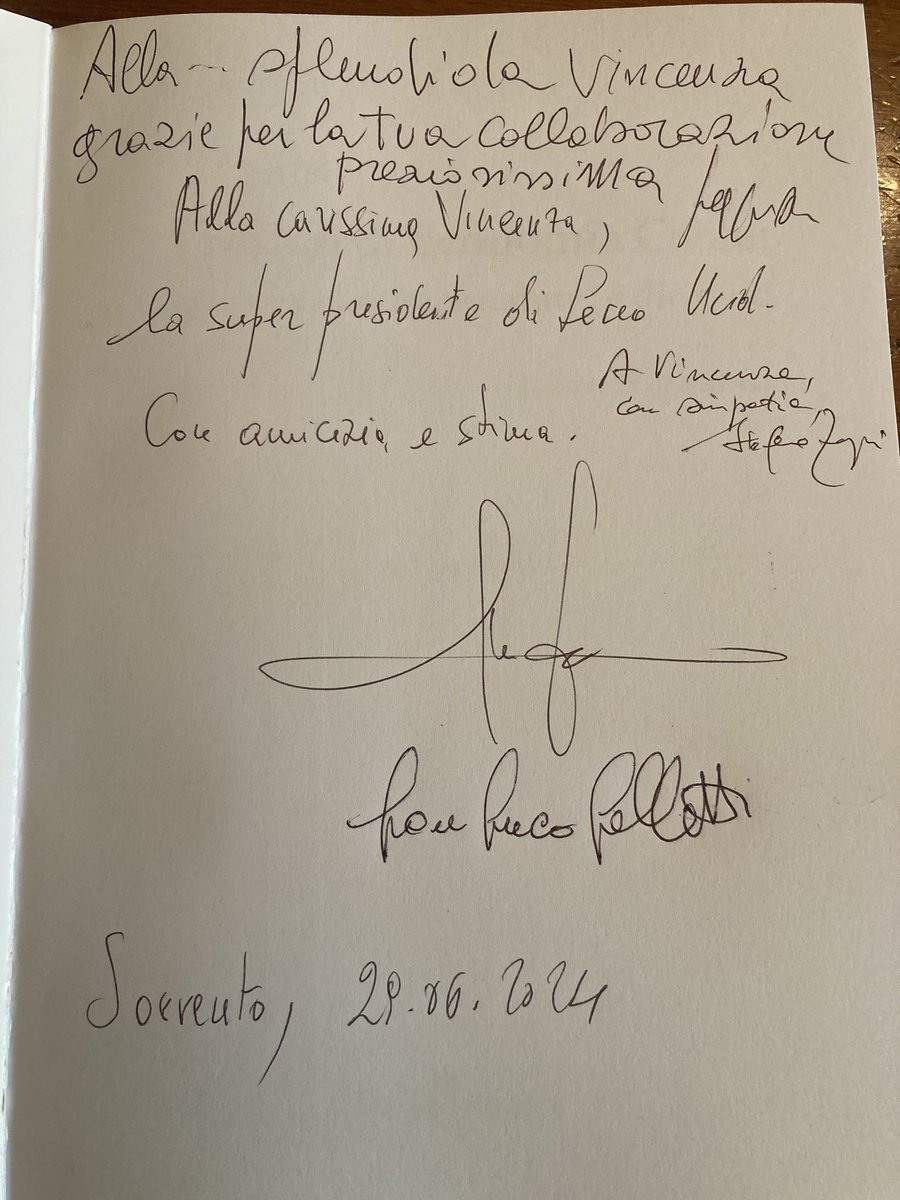 Alla splendida Vincenza
grazie per la tua collaborazione
preziosissima
Alla carissima Vincenza,
la super presidente di Lecco Ucid.
A Vincenza,
con simpatia,
Stefano
Con amicizia e stima.
Gian Luca Galletti
Sorrento, 29.06.2024